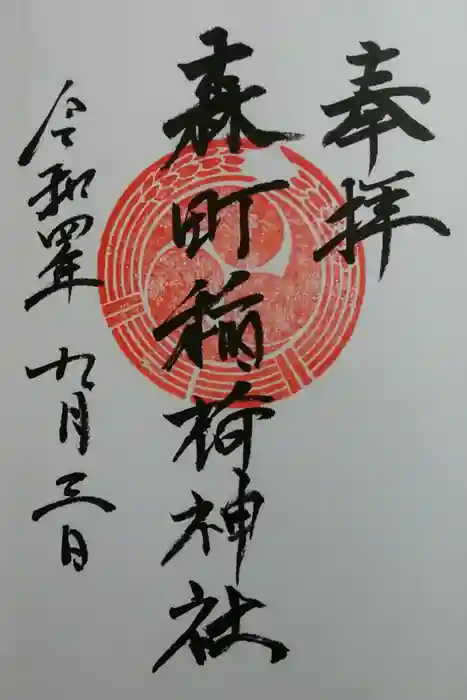 奉拝
森町稲荷神社
令和四年 九月三日